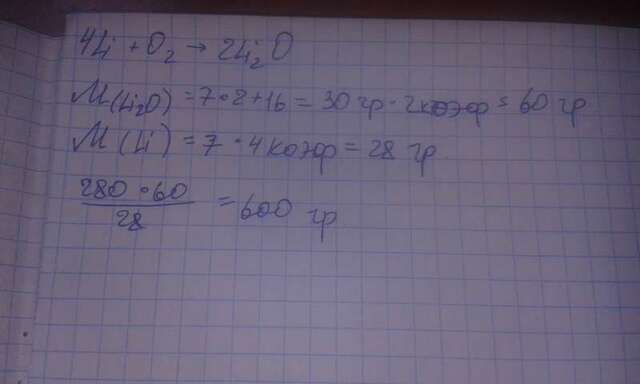 4Li + O₂ → 2Li₂O
M(Li₂O) = 7·2+16 = 30 гр · 2коэф = 60 гр
M (Li) = 7 · 4коэф = 28 гр
280 · 60
28
= 600 гр